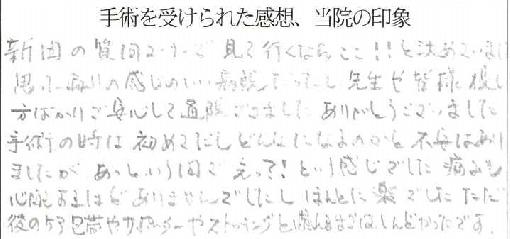 手術を受けられた感想、当院の印象
新聞の質問コーナーで見て行くならここ!!と決めていました
思った通りの感じのいい病院だったし 先生や皆様優しい
方ばかりで安心して通院できました ありがとうございました
手術の時は初めてだしどんなになるのかと不安はあり
ましたが あっという間で えっ?!という感じでした 痛みも
心配するほどありませんでしたし ほんとに楽でした ただ
後のケア 包帯やサポーターやストッキングと慣れるまではしんどかったです。